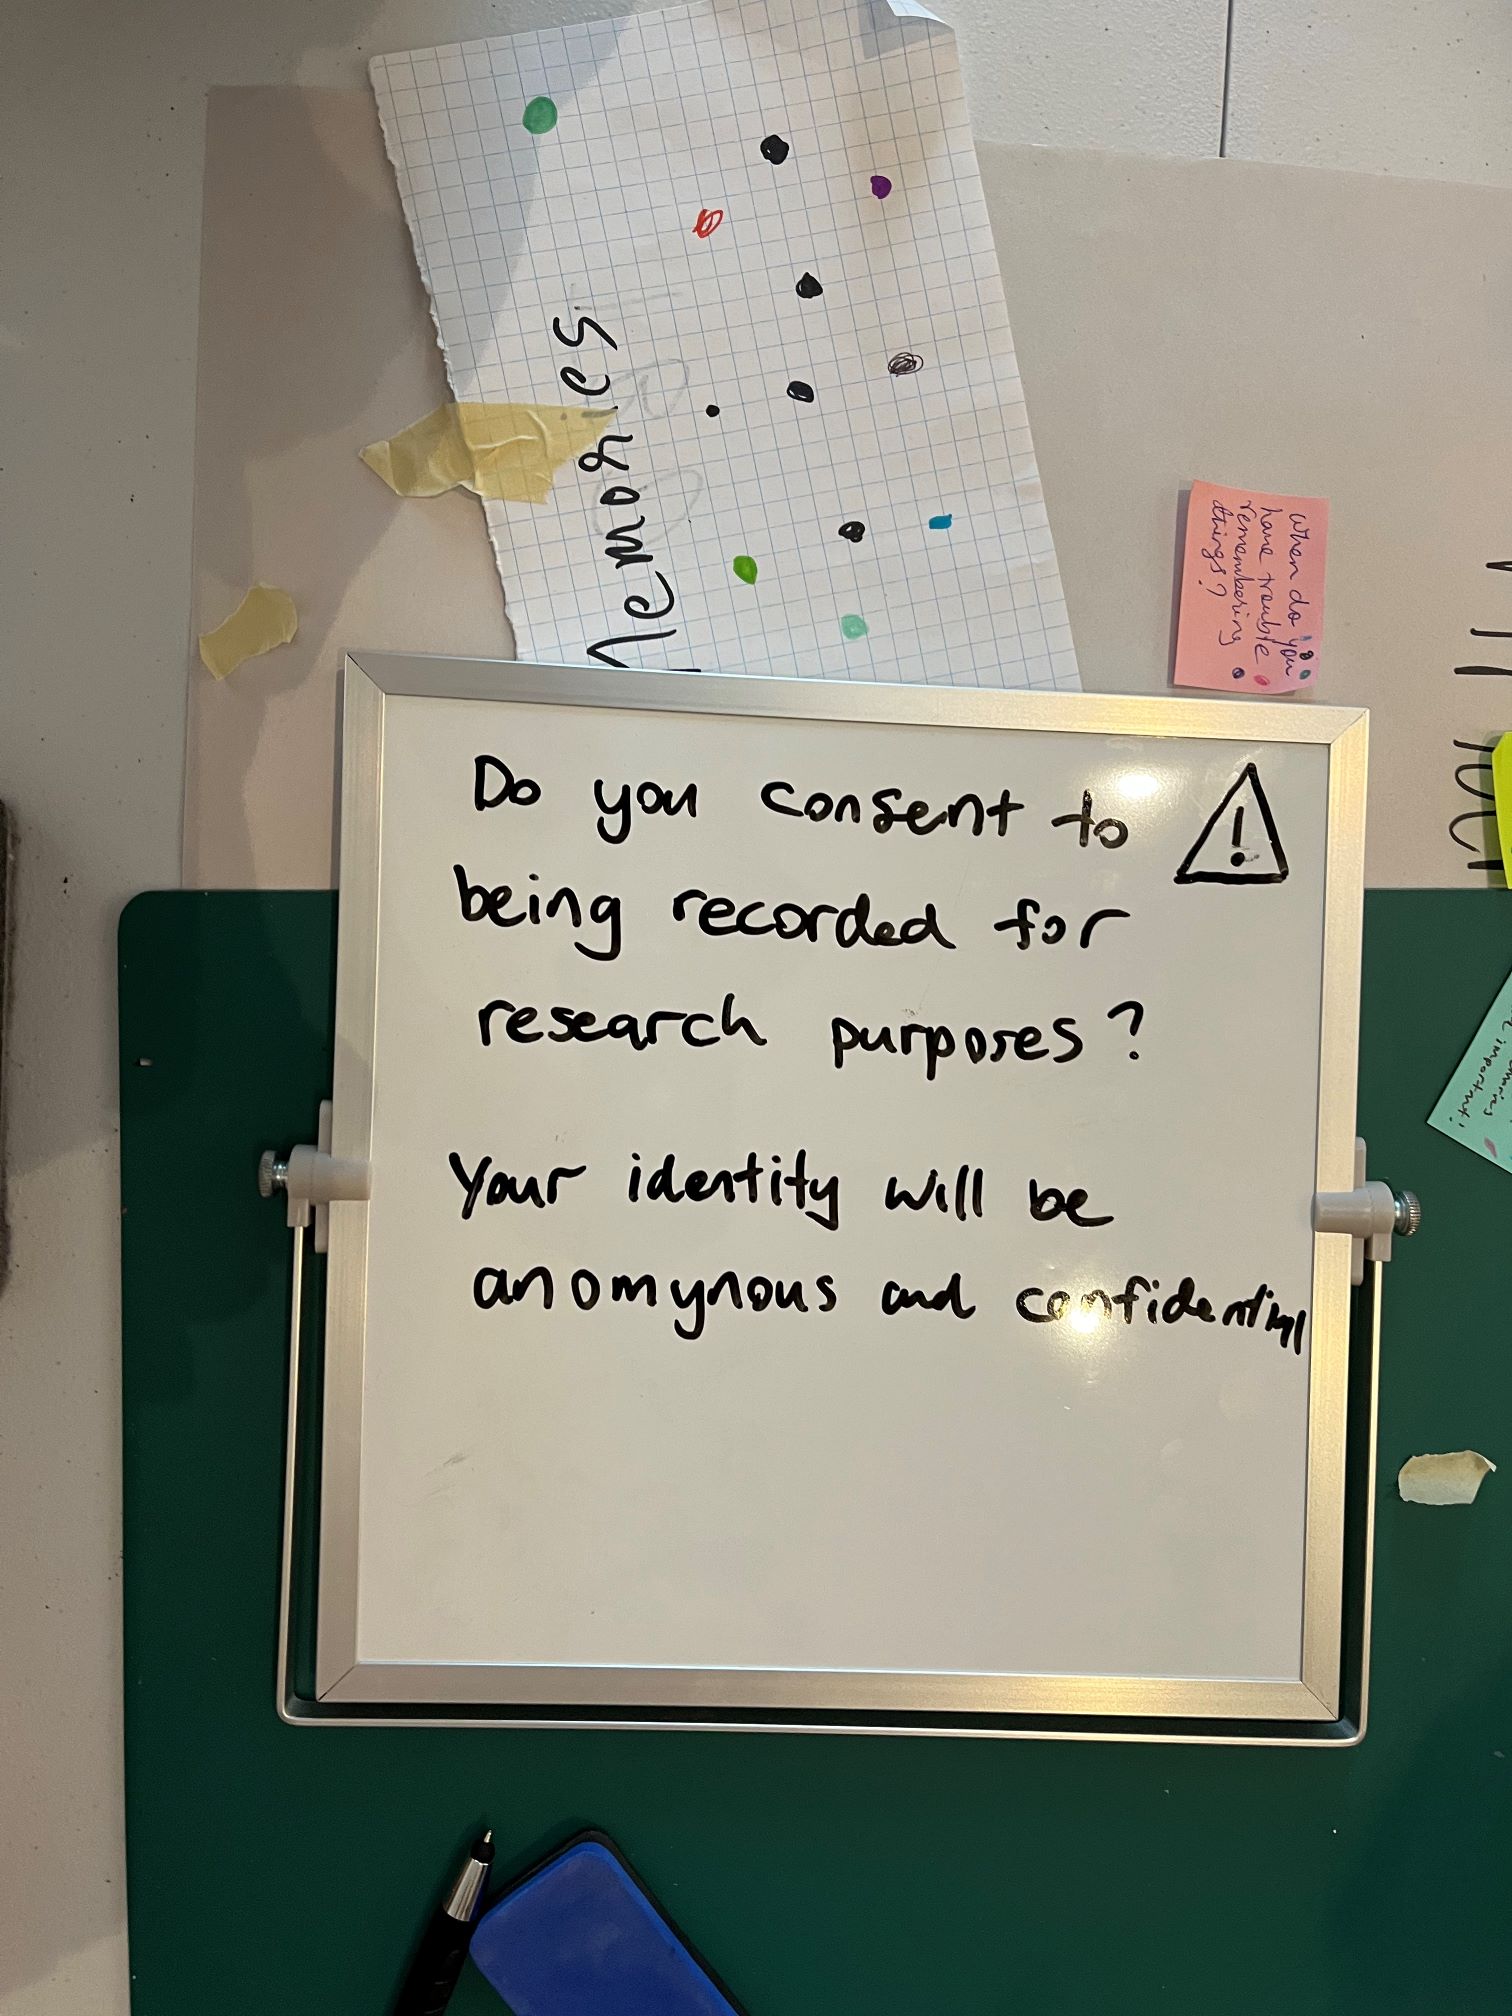 Memories
When do you
have trouble
remembering
things?
Do you consent to
being recorded for
research purposes?
Your identity will be
anomynous and confidential
important!